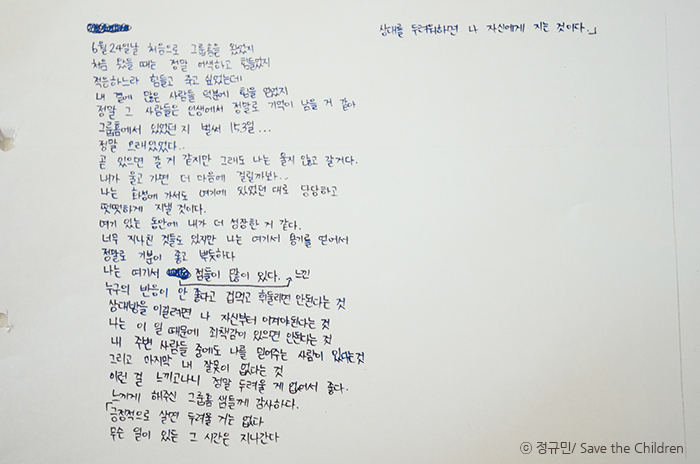 6월 24일날 처음으로 그룹홈을 왔었지
처음 왔을 때는 정말 어색하고 힘들었지
적응하느라 힘들고 죽고 싶었는데
내 곁에 많은 사람들 덕분에 힘을 얻었지
정말 그 사람들은 인생에서 정말로 기억이 남을 거 같아
그룹홈에서 있었던 지 벌써 153일...
정말 오래있었다..
곧 있으면 갈 거 같지만 그래도 나는 울지 않고 갈거다.
내가 울고 가면 더 마음에 걸릴까봐..
나는 화성에 가서도 여기에 있었던 대로 당당하고
떳떳하게 지낼 것이다.
여기 있는 동안에 내가 더 성장한 거 같다.
너무 지나친 것들도 있지만 나는 여기서 용기를 얻어서
정말로 기분이 좋고 뿌듯하다
나는 여기서 점들이 많이 있다. 느낀
누구의 반응이 안 좋다고 겁먹고 휘둘리면 안된다는 것
상대방을 이길려면 나 자신부터 이겨야된다는 것
나는 이 일 때문에 죄책감이 있으면 안된다는 것
내 주변 사람들 중에도 나를 믿어주는 사람이 있다는것
그리고 마지막 내 잘못이 없다는 것
이런 걸 느끼고나니 정말 두려울 게 없어서 좋다.
느끼게 해주신 그룹홈 쌤들께 감사하다.
「긍정적으로 살면 두려울 거는 없다
무슨 일이 있든 그 시간은 지나간다
상대를 두려워하면 나 자신에게 지는 것이다.」
© 정규민/ Save the Children